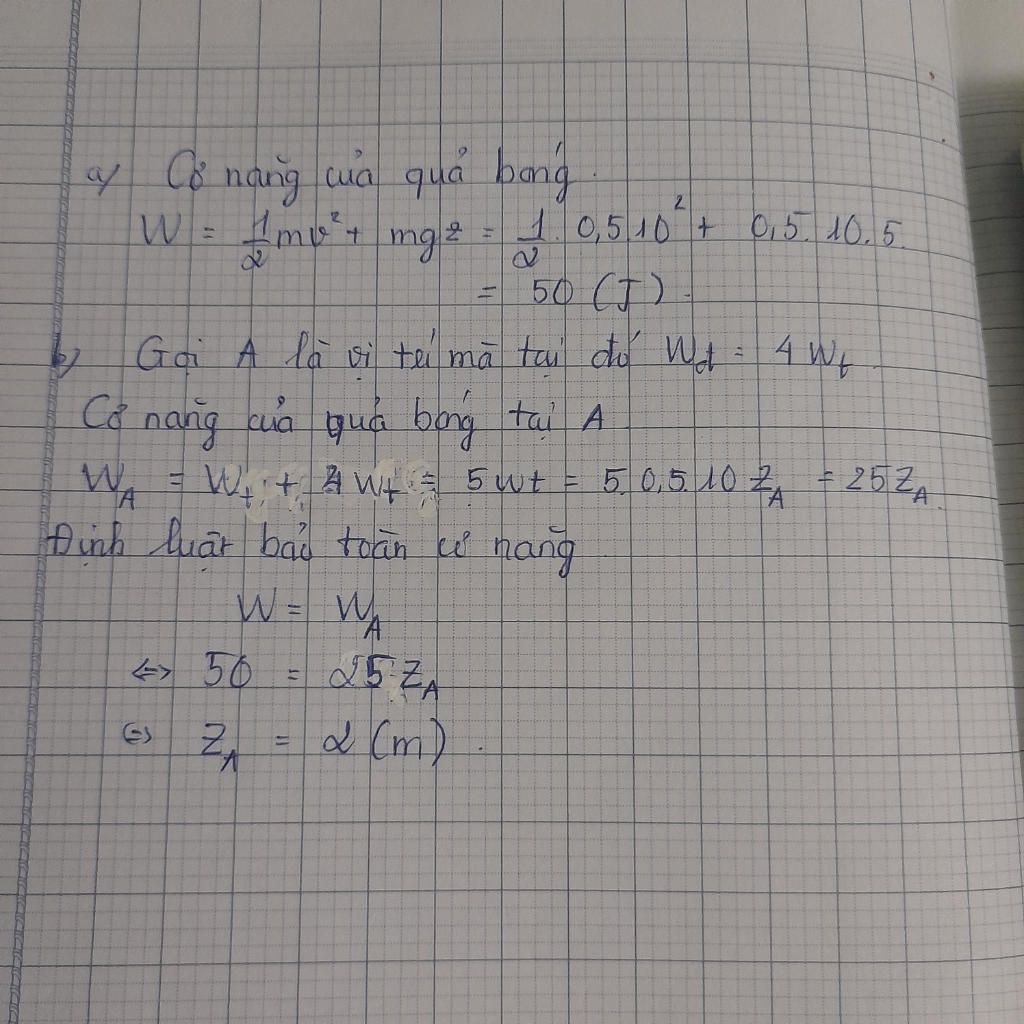 a) Cơ năng của quả bóng.
W = 1/2 mv² + mgz = 1/2 . 0,5 10² + 0,5. 10. 5
= 50 (J).
b) Gọi A là vị trí mà tại đó Wđ = 4 Wt
Cơ năng của quả bóng tại A
W_A = Wt + 4 Wt = 5 Wt = 5. 0,5. 10 Z_A = 25 Z_A.
Định luật bảo toàn cơ năng
W = W_A
⇔ 50 = 25 Z_A
⇔ Z_A = 2 (m).